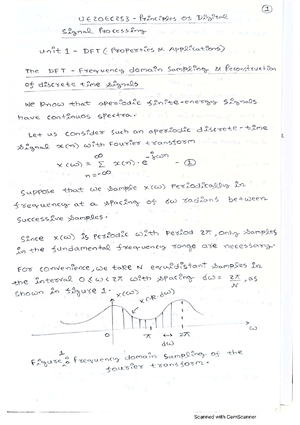 ①
UE20EC253 - Principles of Digital
Signal Processing
Unit 1 - DFT (Properties & Applications)
The DFT - Frequency domain Sampling & Reconstruction
of discrete time signals
We know that aperiodic finite-energy signals
have continuos spectra.
Let us consider such an aperiodic discrete-time
signal x(n) with Fourier transform
x(ω) = ∞ Σ n=-∞ x(n). e^-jωn - ①
Suppose that we sample x(ω) periodically in
frequency at a spacing of δω radians between
successive samples.
Since x(ω) is periodic with period 2π, only samples
in the fundamental frequency range are necessary.
For convenience, we take N equidistant samples in
the interval 0 ≤ ω < 2π with spacing δω = 2π/N, as
shown in figure 1.
x(ω)
x(k δω)
0 π 2π ω
δω
Figure 1: Frequency domain sampling of the
fourier transform.
Scanned with CamScanner